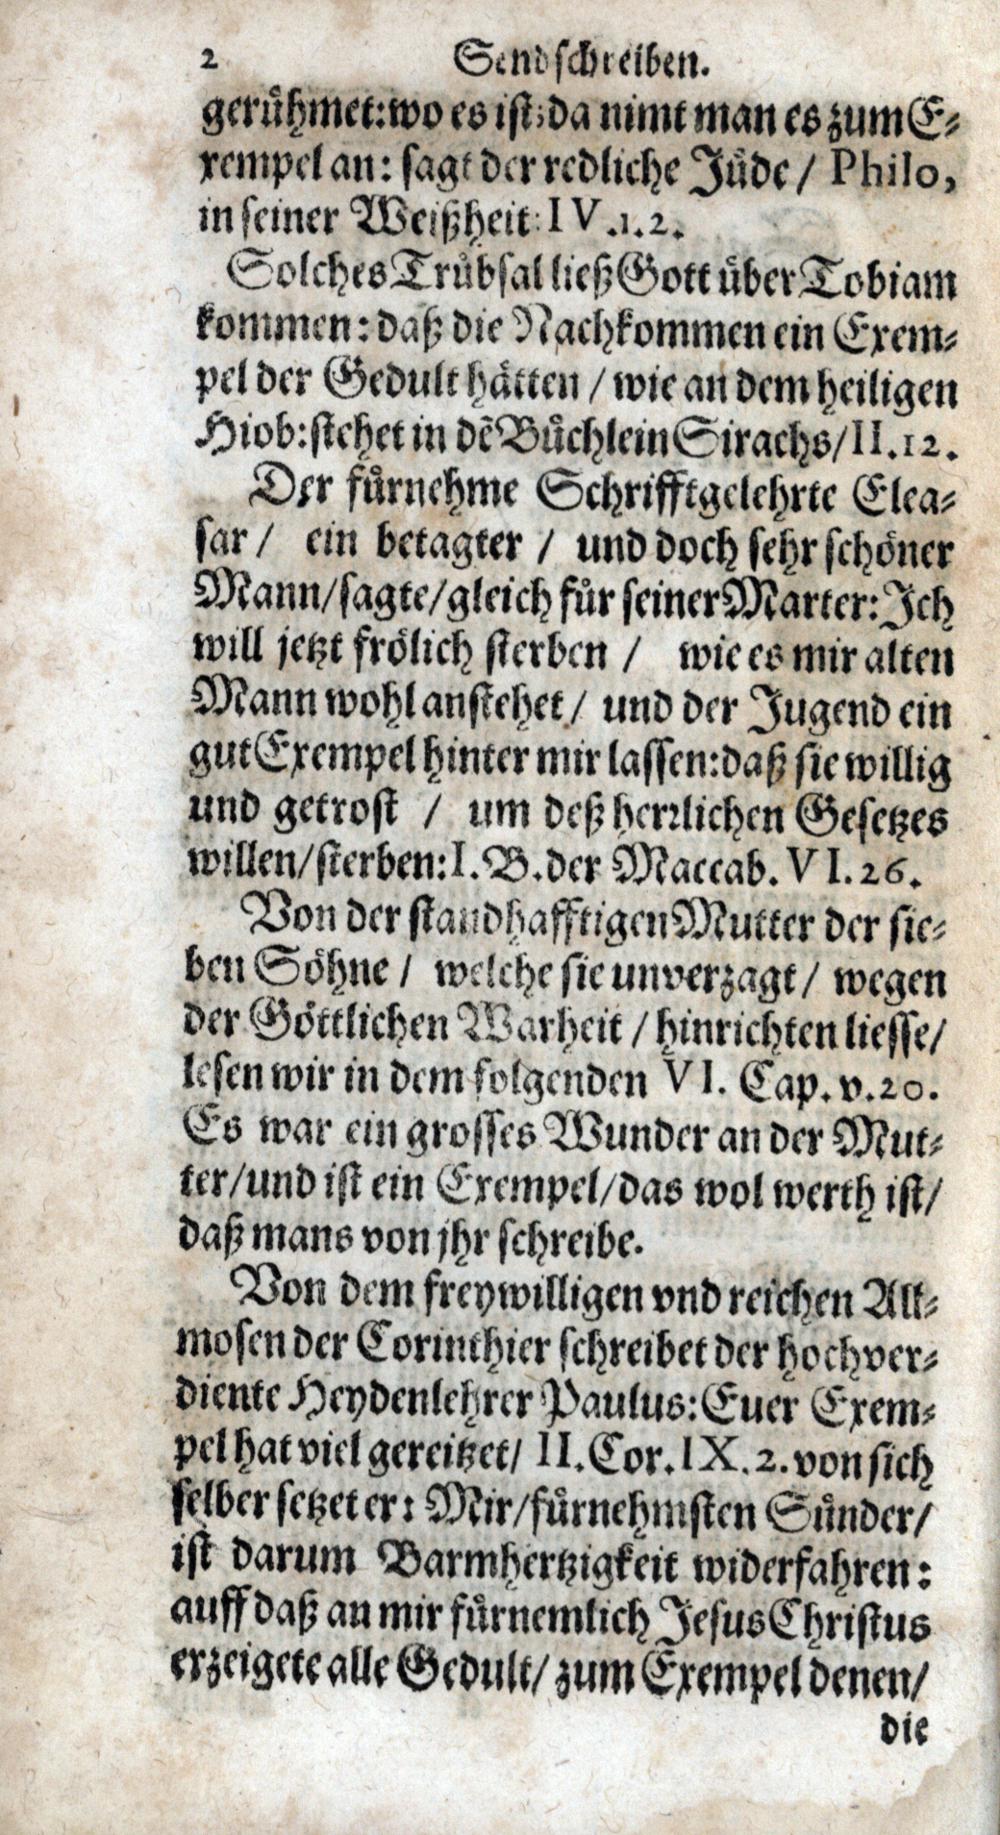 2 Sendschreiben.
gerühmet: wo es ist; da nimt man es zum E-
xempel an: sagt der redliche Jüde / Philo,
in seiner Weißheit: IV.1.2.
Solches Trübsal ließ Gott über Tobiam
kommen: daß die Nachkommen ein Exem-
pel der Gedult hätten / wie an dem heiligen
Hiob: stehet in dē Büchlein Sirachs / II.12.
Der fürnehme Schrifftgelehrte Elea-
sar / ein betagter / und doch sehr schöner
Mann / sagte / gleich für seiner Marter: Ich
will jetzt frölich sterben / wie es mir alten
Mann wohl anstehet / und der Jugend ein
gut Exempel hinter mir lassen: daß sie willig
und getrost / um deß herꝛlichen Gesetzes
willen / sterben: I. B. der Maccab. VI.26.
Von der standhafftigen Mutter der sie-
ben Söhne / welche sie unverzagt / wegen
der Göttlichen Warheit / hinrichten liesse /
lesen wir in dem folgenden VI. Cap. v.20.
Es war ein grosses Wunder an der Mut-
ter / und ist ein Exempel / das wol werth ist /
daß mans von jhr schreibe.
Von dem freywilligen vnd reichen All-
mosen der Corinthier schreibet der hochver-
diente Heydenlehrer Paulus: Euer Exem-
pel hat viel gereitzet / II. Cor. IX.2. von sich
selber setzet er: Mir / fürnehmsten Sünder /
ist darum Barmhertzigkeit widerfahren:
auff daß an mir fürnemlich Jesus Christus
erzeigete alle Gedult / zum Exempel denen /
die